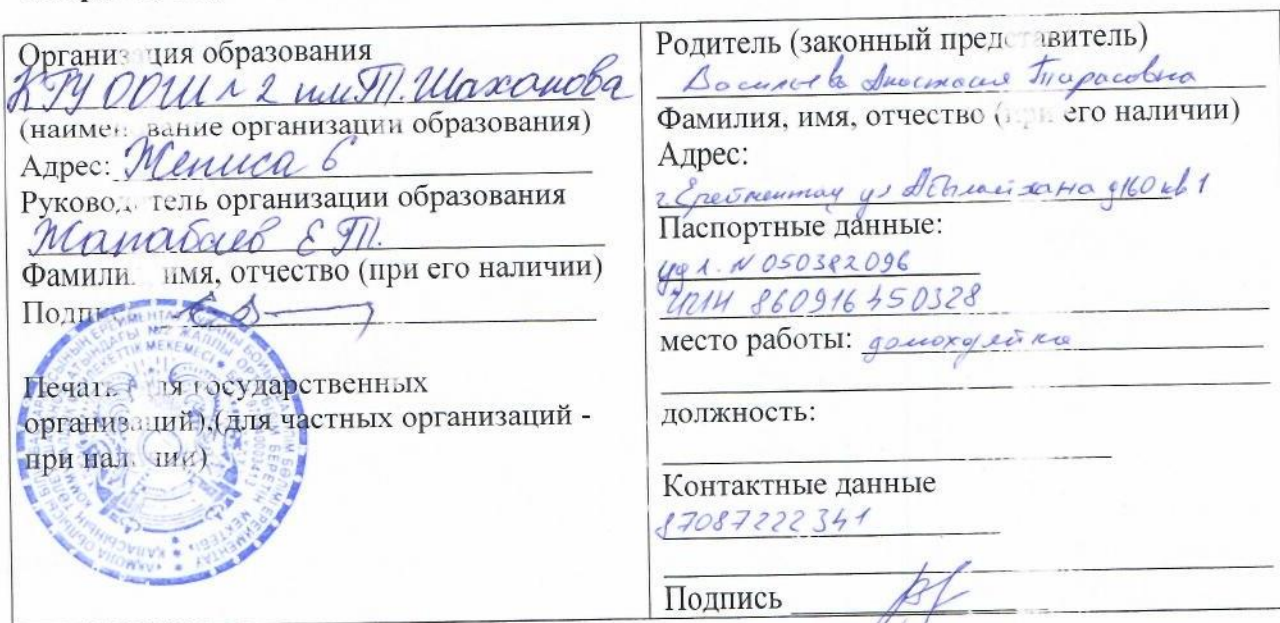 Организация образования
КГУ ООШ № 2 им Т. Шаханова
(наименование организации образования)
Адрес: Жениса 6
Руководитель организации образования
Жапабаев Е.Т.
Фамилия имя, отчество (при его наличии)
Подпись
Печать (для государственных
организаций),(для частных организаций -
при наличии)
Родитель (законный представитель)
Васильева Анастасия Тарасовна
Фамилия, имя, отчество (при его наличии)
Адрес:
г Ерейментау ул Абылайхана д160 кв 1
Паспортные данные:
уд л. N 050382096
ИИН 860916450328
место работы: домохозяйка
должность:
Контактные данные
87087222341
Подпись